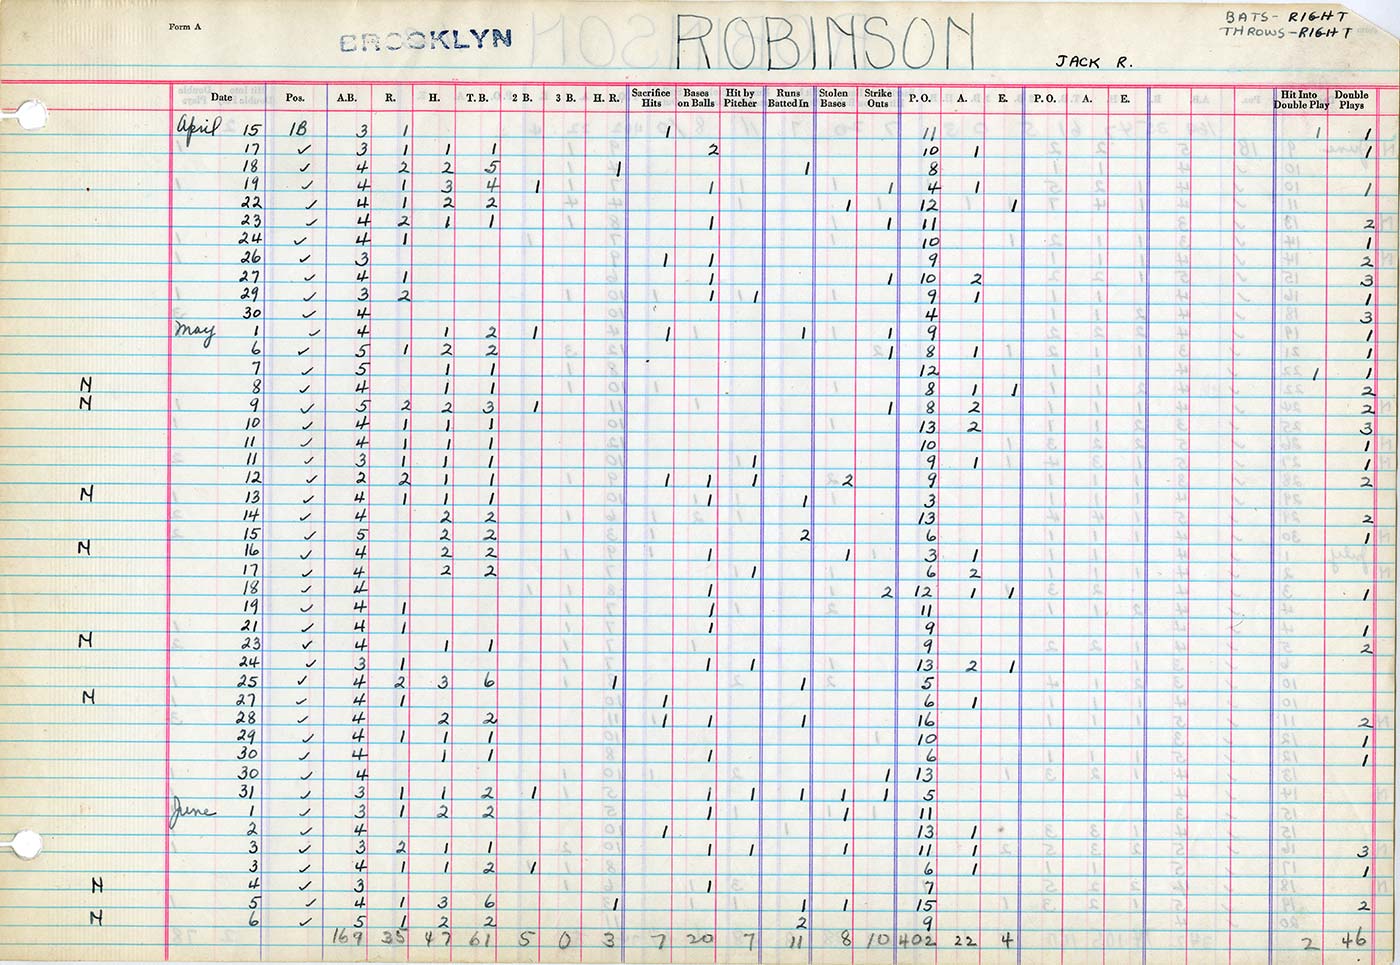 Form A
BROOKLYN
ROBINSON
JACK R.
BATS- RIGHT
THROWS-RIGHT
Date Pos. A.B. R. H. T.B. 2 B. 3 B. H. R. Sacrifice Hits Bases on Balls Hit by Pitcher Runs Batted In Stolen Bases Strike Outs P.O. A. E. P.O. A. E. Hit Into Double Play Double Plays
April 15 1B 3 1 1 11 1 1
17 ✓ 3 1 1 1 2 10 1 1
18 ✓ 4 2 2 5 1 1 8
19 ✓ 4 1 3 4 1 1 1 4 1 1
22 ✓ 4 1 2 2 1 12 1
23 ✓ 4 2 1 1 1 1 11 2
24 ✓ 4 1 10 1
26 ✓ 3 1 1 9 2
27 ✓ 4 1 1 1 10 2 3
29 ✓ 3 2 1 1 9 1 1
30 ✓ 4 4 3
May 1 ✓ 4 1 2 1 1 1 1 9 1
6 ✓ 5 1 2 2 1 8 1 1
7 ✓ 5 1 1 12 1 1
N 8 ✓ 4 1 1 8 1 1 2
N 9 ✓ 5 2 2 3 1 1 8 2 2
10 ✓ 4 1 1 1 13 2 3
11 ✓ 4 1 1 1 10 1
11 ✓ 3 1 1 1 1 9 1 1
12 ✓ 2 2 1 1 1 1 1 2 9 2
N 13 ✓ 4 1 1 1 1 1 3
14 ✓ 4 2 2 13 2
15 ✓ 5 2 2 2 6 1
N 16 ✓ 4 2 2 1 1 3 1
17 ✓ 4 2 2 1 6 2
18 ✓ 4 1 2 12 1 1 1
19 ✓ 4 1 1 11
21 ✓ 4 1 1 9 1
N 23 ✓ 4 1 1 9 2
24 ✓ 3 1 1 1 13 2 1
25 ✓ 4 2 3 6 1 1 5
N 27 ✓ 4 1 1 6 1
28 ✓ 4 2 2 1 1 1 16 2
29 ✓ 4 1 1 1 10 1
30 ✓ 4 1 1 1 6 1
30 ✓ 4 1 13
31 ✓ 3 1 1 2 1 1 1 1 1 1 5
June 1 ✓ 3 1 2 2 1 1 11
2 ✓ 4 1 13 1
3 ✓ 3 2 1 1 1 1 1 11 1 3
3 ✓ 4 1 1 2 1 6 1 1
N 4 ✓ 3 1 7
5 ✓ 4 1 3 6 1 1 1 15 2
N 6 ✓ 5 1 2 2 2 9
169 35 47 61 5 0 3 7 20 7 11 8 10 402 22 4 2 46